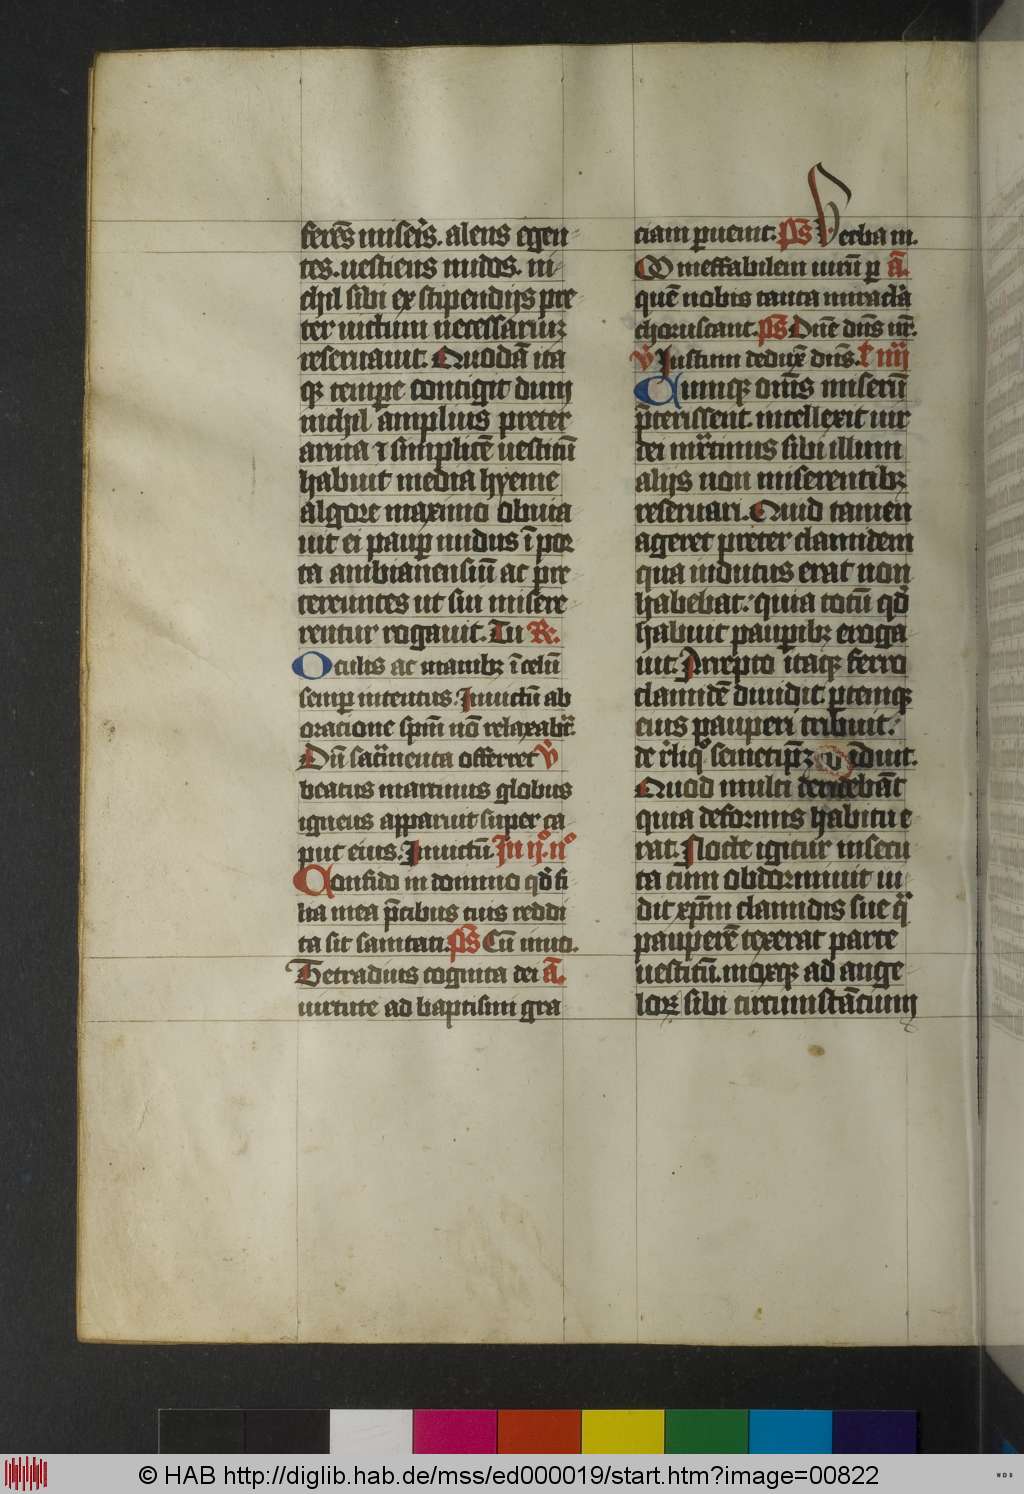 ferēs miser̉s. alens egen
tes. uestiens nudos. ni
chil sibi ex stipendijs pre
ter uictum necessariuꝝ
reseruauit. Quodā ita
qꝫ tempe contigit dum
nichil amplius preter
arma ⁊ simplicē uestitū
habuit media hyeme
algore maximo obuia
uit ei paup̲ nudus ī por
ta ambianensiū ac pre
tereuntes ut sui misere
rentur rogauit. Tu R.
Oculis ac manibꝫ ī celū
semp̲ intentus. Inuictū ab
oratione spm̄ nō relaxabt̉.
Dū sac̉menta offerret v̄
beatus martinus globus
igneus apparuit super ca
put eius. Inuictū. In ij°. n°
Confido in domino qd̛ fi
lia mea p̄cibus tuis reddi
ta sit sanitati. ps̄ Cū inuo.
Tetradius cognita dei a͞.
uirtute ad baptismi gra
ciam p̲uenit. ps̄ Verba m.
O ineffabilem uirū p̲ a͞.
quē nobis tanta miracl̉a
choruscant. ps̄ Dn̄e dn̄s nr̄.
v̄ Iustum deduxͭ dn̄s. l̄ iiij
Cumqꝫ om̄s miserū
p̄terissent. intellexit uir
dei mr̄tinus sibi illum
alijs non miserentibꝫ
reseruari. Quid tamen
ageret preter clamidem
qua indutus erat non
habebat. quia totū qd̛
habuit paup̲ibꝫ eroga
uit. Arrepto itaqꝫ ferro
clamidē diuidit. p̲temqꝫ
eius pauperi tribuit.
de r̉liqͦ semetip̄ꝫ induit.
Quod multi deridebāt
quia deformis habitu e
rat. Nocte igitur insecu
ta cum obdormiuit ui
dit xp̄m clamidis sue qͣ
pauperē texerat parte
uestitū. moxqꝫ ad ange
loꝝ sibi circumstāctium
© HAB http://diglib.hab.de/mss/ed000019/start.htm?image=00822